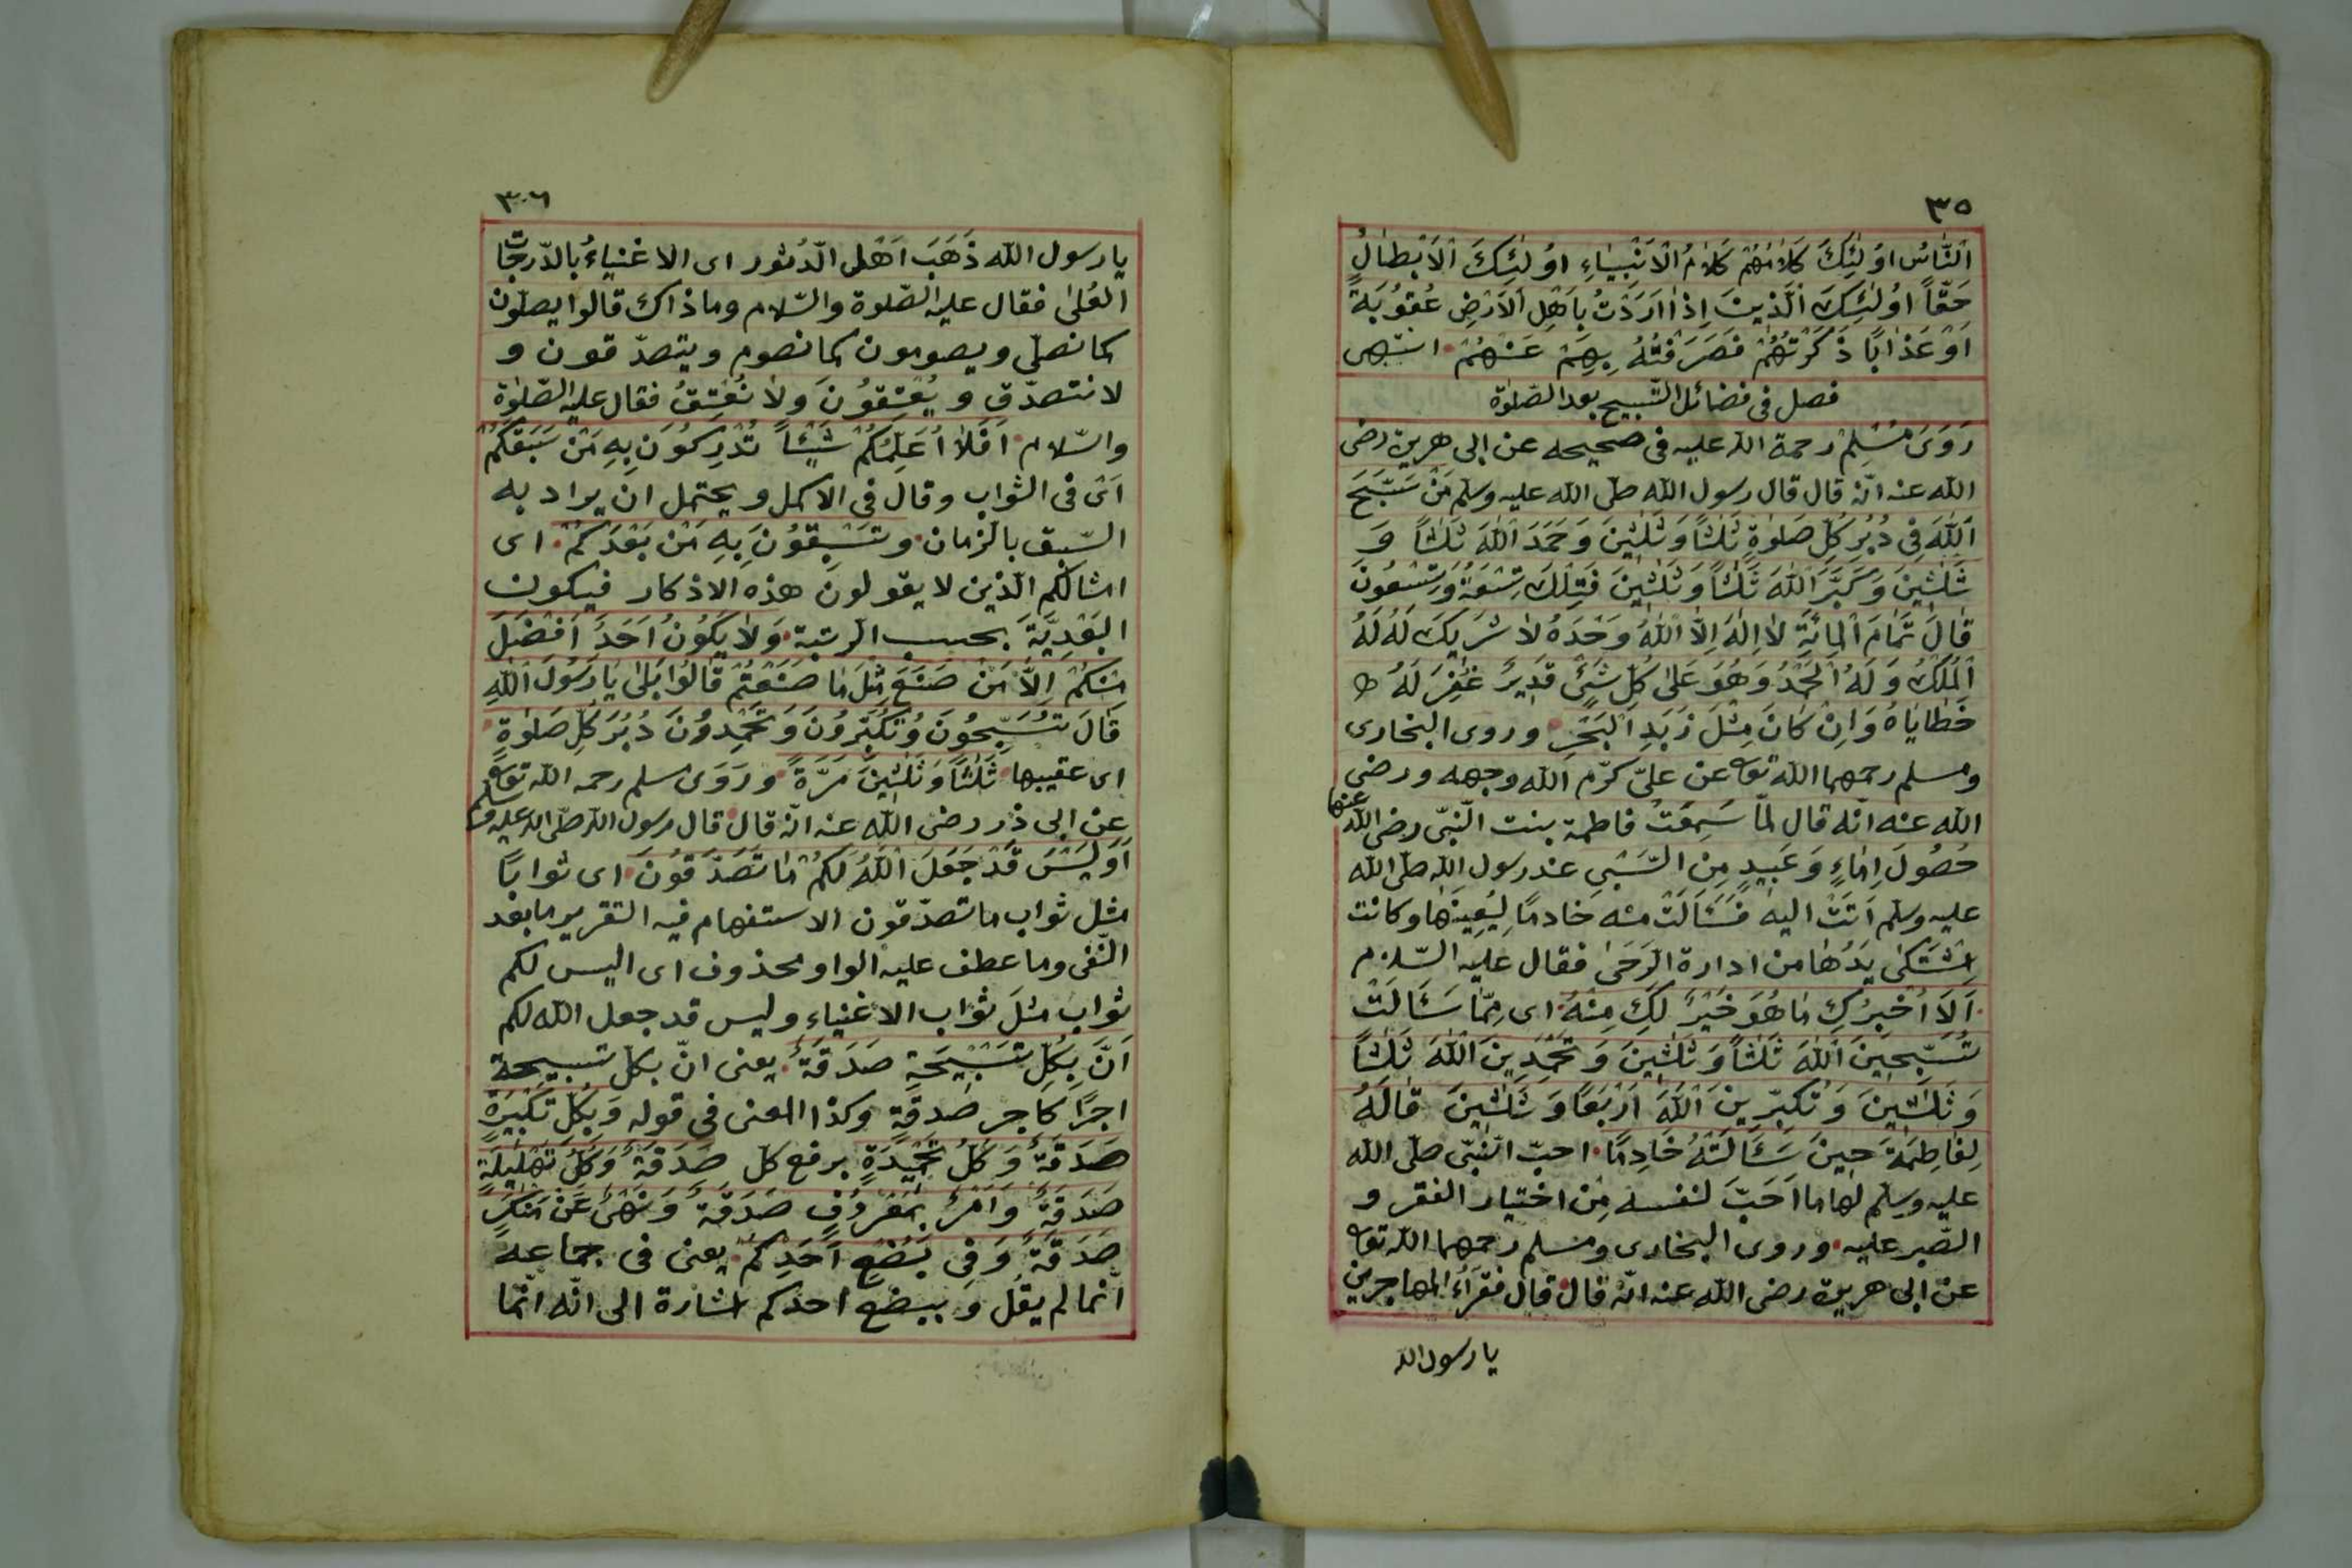 ٣٥
اَلنَّاسُ اُولٰئِكَ كَلَامُهُمْ كَلَامُ الْاَنْبِيَاءِ اُولٰئِكَ الْاَبْطَالُ
حَقّاً اُولٰئِكَ الَّذينَ اِذٰا اَرَدْتُ بِاَهْلِ الْاَرْضِ عُقُوبَةً
اَوْ عَذٰابًا ذَكَرْتُهُمْ فَصَرَفْتُهُ بِهِمْ عَنْهُمْ انتهى
فصل فى فضائل التّسبيح بعد الصّلوٰة
رَوَى مُسْلِمْ رحمة الله عليه فى صحيحه عن ابى هريرة رضى
الله عنه انّه قال قال رسول الله صلّى الله عليه وسلم مَنْ سَبَّحَ
اَللّٰهَ فِى دُبُرِ كُلِّ صَلوٰةٍ ثَلٰثاً وَ ثَلٰثِينَ وَ حَمَدَ اللّٰهَ ثَلٰثاً وَ
ثَلٰثِينَ وَ كَبَّرَ اللّٰهَ ثَلٰثاً وَ ثَلٰثِينَ فَتِلْكَ تِسْعَةٌ وَ تِسْعُونَ
قٰالَ تَمَامَ الْمِائَةِ لاٰ اِلٰهَ اِلاَّ اللّٰهُ وَحْدَهُ لاٰ شَرِيكَ لَهُ لَهُ
اَلْمُلْكُ وَ لَهُ الْحَمْدُ وَهُوَ عَلٰى كُلِّ شَيْئٍ قَدِيرٌ غُفِرَ لَهُ
خَطٰايٰاهُ وَ اِنْ كٰانَ مِثْلَ زَبَدِ الْبَحْرِ وروى البخارى
ومسلم رحمهما الله تعه عن علىّ كرّم الله وجهه ورضى
الله عنه انّه قال لمّا سَمِعَتْ فاطمة بنت النّبىّ رضى الله عنها
حُصُولَ اِمٰاءٍ وَ عَبِيدٍ مِنَ السَّبْىِ عند رسول الله صلّى الله
عليه وسلم اَتَتْ اليه فَسَئَالَتْ منه خَادمًا لِيُعِينَهٰا وكانت
اِشْتَكٰى يَدُهٰا من ادارة الرَحٰى فقال عليه السّلام
اَلاَ اُخْبِرُكِ مٰا هُوَ خَيْرٌ لَكِ مِنْهُ اى ممّا سَئَالَتْ
تُسَبِّحِينَ اللّٰهَ ثَلٰثاً وَ ثَلٰثِينَ وَ تَحْمَدِينَ اللّٰهَ ثَلٰثاً
وَ ثَلٰثِينَ وَ تُكَبِّرِينَ اللّٰهَ اَرْبَعًا وَ ثَلٰثِينَ قٰالَهُ
لِفٰاطِمَةَ حِينَ سَئَالَتْهُ خَادِمًا احبّ النّبىّ صلّى الله
عليه وسلم لها ما اَحَبَّ لنفسه مِن اختيار الفقر و
الصّبر عليه وروى البخارى ومسلم رحمهما الله تعه
عن ابى هريرة رضى الله عنه انّه قال قال فقرآءُ المهاجرين
يا رسول الله
٣٠٦
يا رسول الله ذَهَبَ اَهْلُ الدُّثور اى الاغنياءُ بالدّرجات
العُلٰى فقال عليه الصّلوة والسّلام وما ذاك قالوا يصلّون
كما نصلّى ويصومون كما نصوم ويتصدّقون و
لا نتصدّق و يُعْتِقُونَ وَلاٰ نُعْتِقُ فقال عليه الصّلوٰة
والسّلام اَفَلاٰ اُعَلِّمُكُمْ شَيْئاً تُدْرِكُونَ بِهِ مَنْ سَبَقَكُمْ
اَىْ فى الثواب وقال فى الاكمل ويحتمل ان يراد به
السّبق بالزّمان وتَسْبِقُونَ بِهِ مَنْ بَعْدَكُمْ اى
امثالكم الّذين لا يقولون هذه الاذكار فيكون
البَعْدِيَّةَ بحسب الرّتبة وَلاٰ يَكُونُ اَحَدٌ اَفْضَلَ
مِنْكُمْ اِلاَّ مَنْ صَنَعَ مِثْلَ مٰا صَنَعْتُمْ قٰالُوا بَلٰى يٰا رَسُولَ اللّٰهِ
قٰالَ تُسَبِّحُونَ وَ تُكَبِّرُونَ وَ تَحْمِدُونَ دُبُرَ كُلِّ صَلوٰةٍ
اى عقيبها ثَلٰثًا وَ ثَلٰثِينَ مَرَّةً ورَوَى مسلم رحمه الله تعه
عن ابى ذر رضى الله عنه انّه قال قال رسول الله صلّى الله عليه وسلم
اَوَلَيْسَ قَدْ جَعَلَ اللّٰهُ لَكُمْ مٰا تَصَدَّقُونَ اى ثوابًا
مثل ثواب ما تصدّقون الاستفهام فيه التقرير ما بعد
النّفى وما عطف عليه الواو محذوف اى اليس لكم
ثواب مثلَ ثواب الاغنياءِ وليس قد جعل الله لكم
اَنَّ بِكُلِّ تَسْبِيحَةٍ صَدَقَةً يعنى انّ بكلّ تسبيحة
اجرًا كاجر صدقةٍ وكذا المعنى فى قوله وَ بِكُلِّ تَكْبِيرَةٍ
صَدَقَةٌ وَ كُلُّ تَحْمِيدَةٍ برفع كل صَدَقَةٌ وَ كُلُّ تَهْلِيلَةٍ
صَدَقَةٌ وَ اَمْرٌ بِمَعْرُوفٍ صَدَقَةٌ وَ نَهْىٌ عَنْ مُنْكَرٍ
صَدَقَةٌ وَ فِى بُضْعِ اَحَدِكُمْ يعنى فى جماعه
انّما لم يقل وَ ببضع احدكم اشارة الى انّه انّما